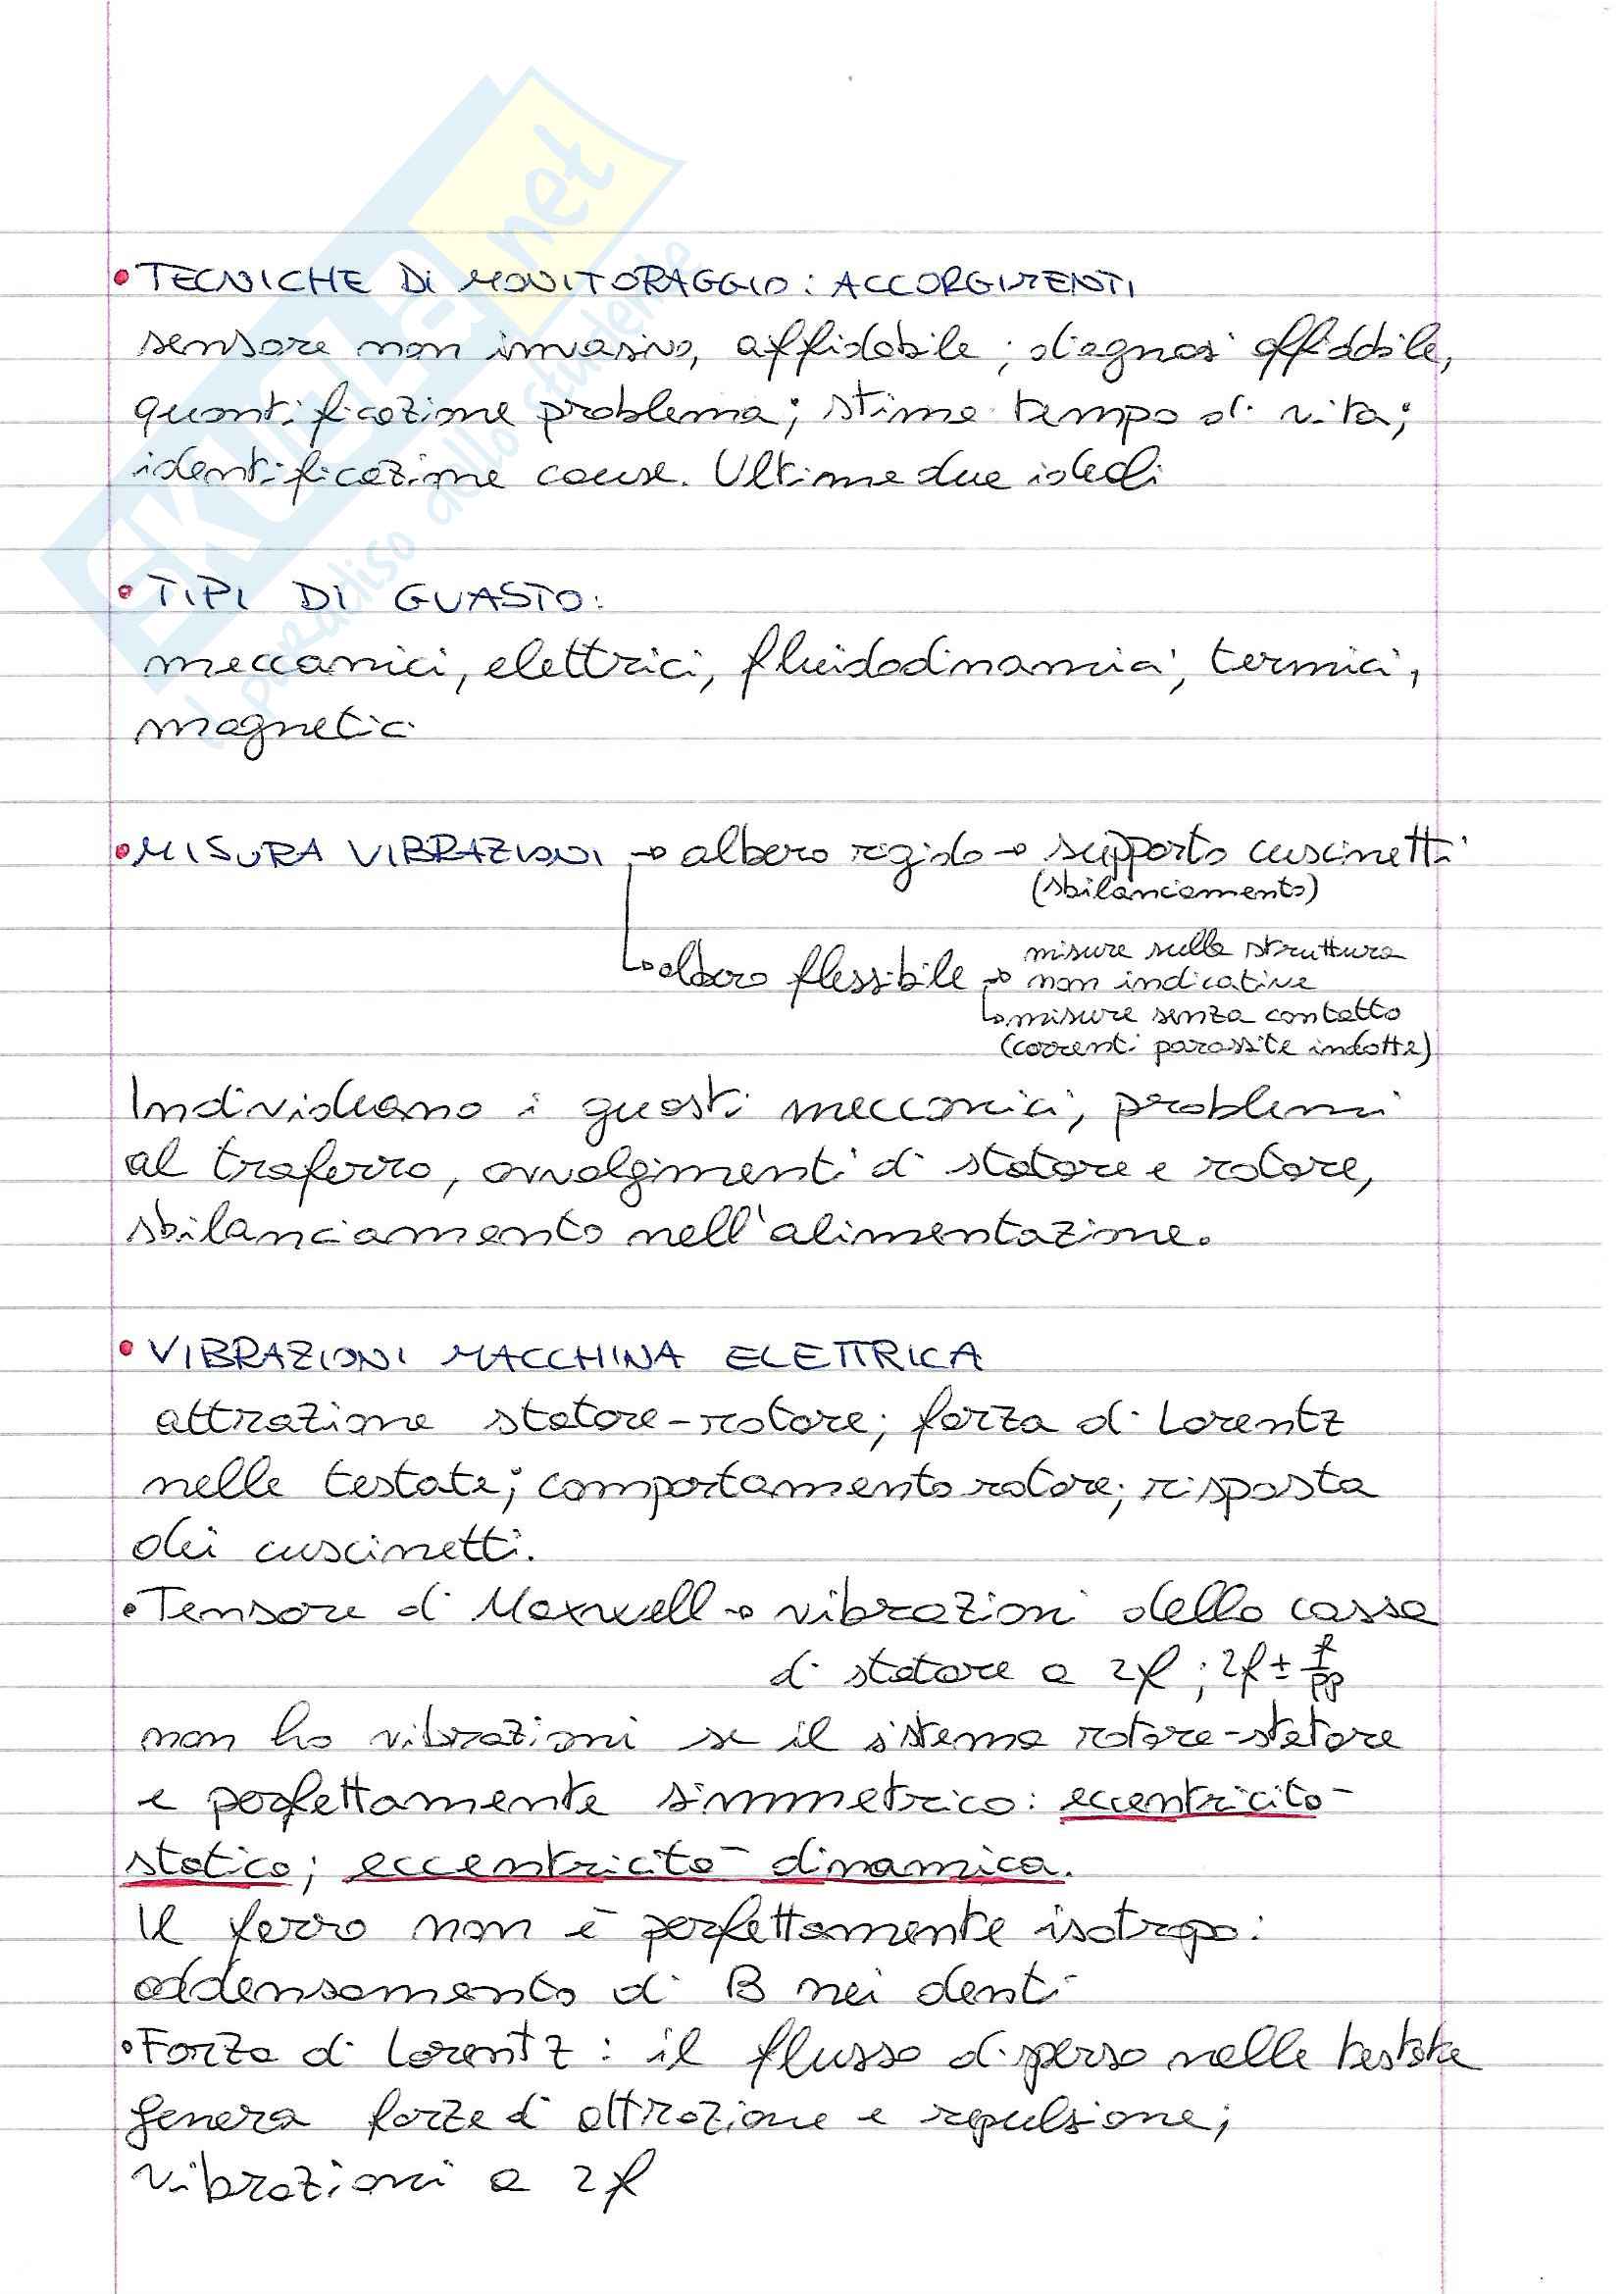 • TECNICHE DI MONITORAGGIO: ACCORGIMENTI
sensore non invasivo, affidabile; diagnosi affidabile,
quantificazione problema; stima tempo di vita;
identificazione cause. Ultime due ideali
• TIPI DI GUASTO:
meccanici, elettrici, fluidodinamici, termici,
magnetici
• MISURA VIBRAZIONI → albero rigido → supporto cuscinetti
(sbilanciamento)
↳ albero flessibile → misure sulla struttura
non indicative
↳ misure senza contatto
(correnti parassite indotte)
Individuano i guasti meccanici, problemi
al traferro, avvolgimenti di statore e rotore,
sbilanciamento nell'alimentazione.
• VIBRAZIONI MACCHINA ELETTRICA
attrazione statore-rotore; forza di Lorentz
nelle testate; comportamento rotore; risposta
dei cuscinetti.
• Tensore di Maxwell → vibrazioni della cassa
di statore a 2f; 2f ± f/pp
non ho vibrazioni se il sistema rotore-statore
è perfettamente simmetrico: eccentricità
statica; eccentricità dinamica.
Il ferro non è perfettamente isotropo:
addensamento di B nei denti
• Forza di Lorentz: il flusso disperso nelle testate
genera forze di attrazione e repulsione;
vibrazioni a 2f
SKUOLA.net
il paradiso dello studente